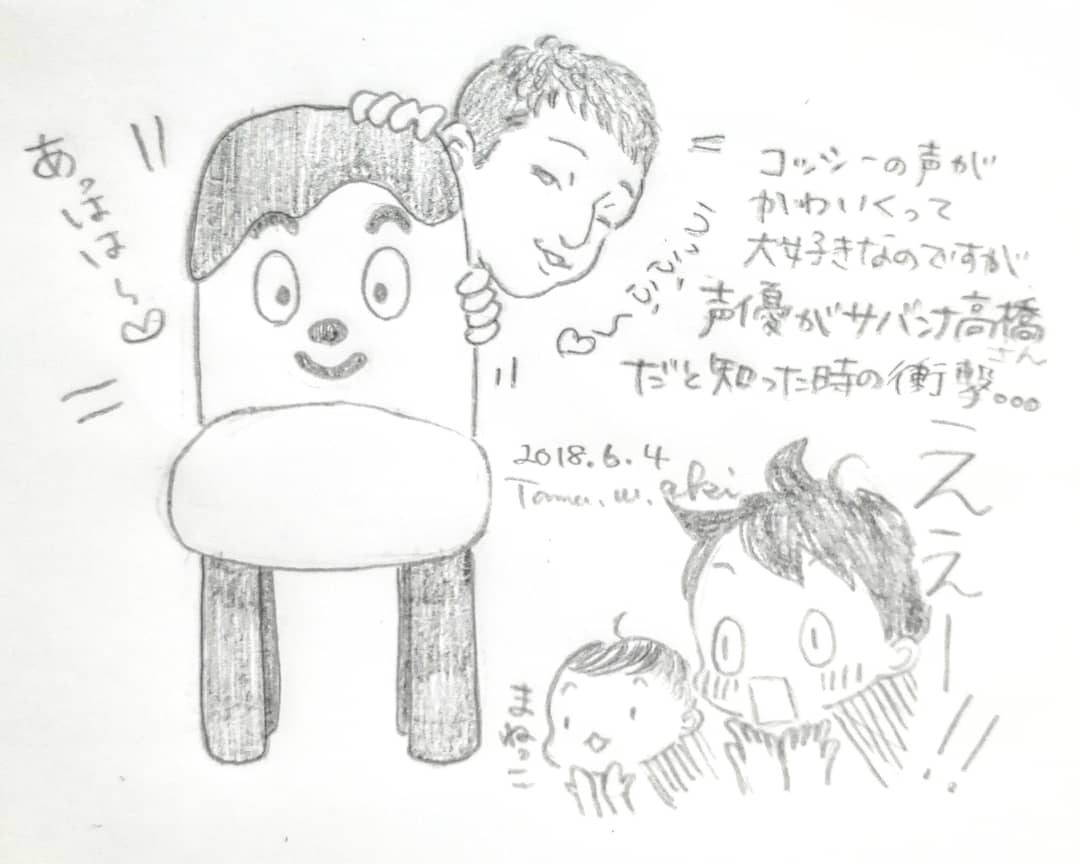 あっはは～♡
コッシーの声が
かわいくって
大好きなのですが
声優がサバンナ高橋
さん
だと知った時の衝撃...
うふふふ～♡
2018.6.4
えええー!!
まねっこ